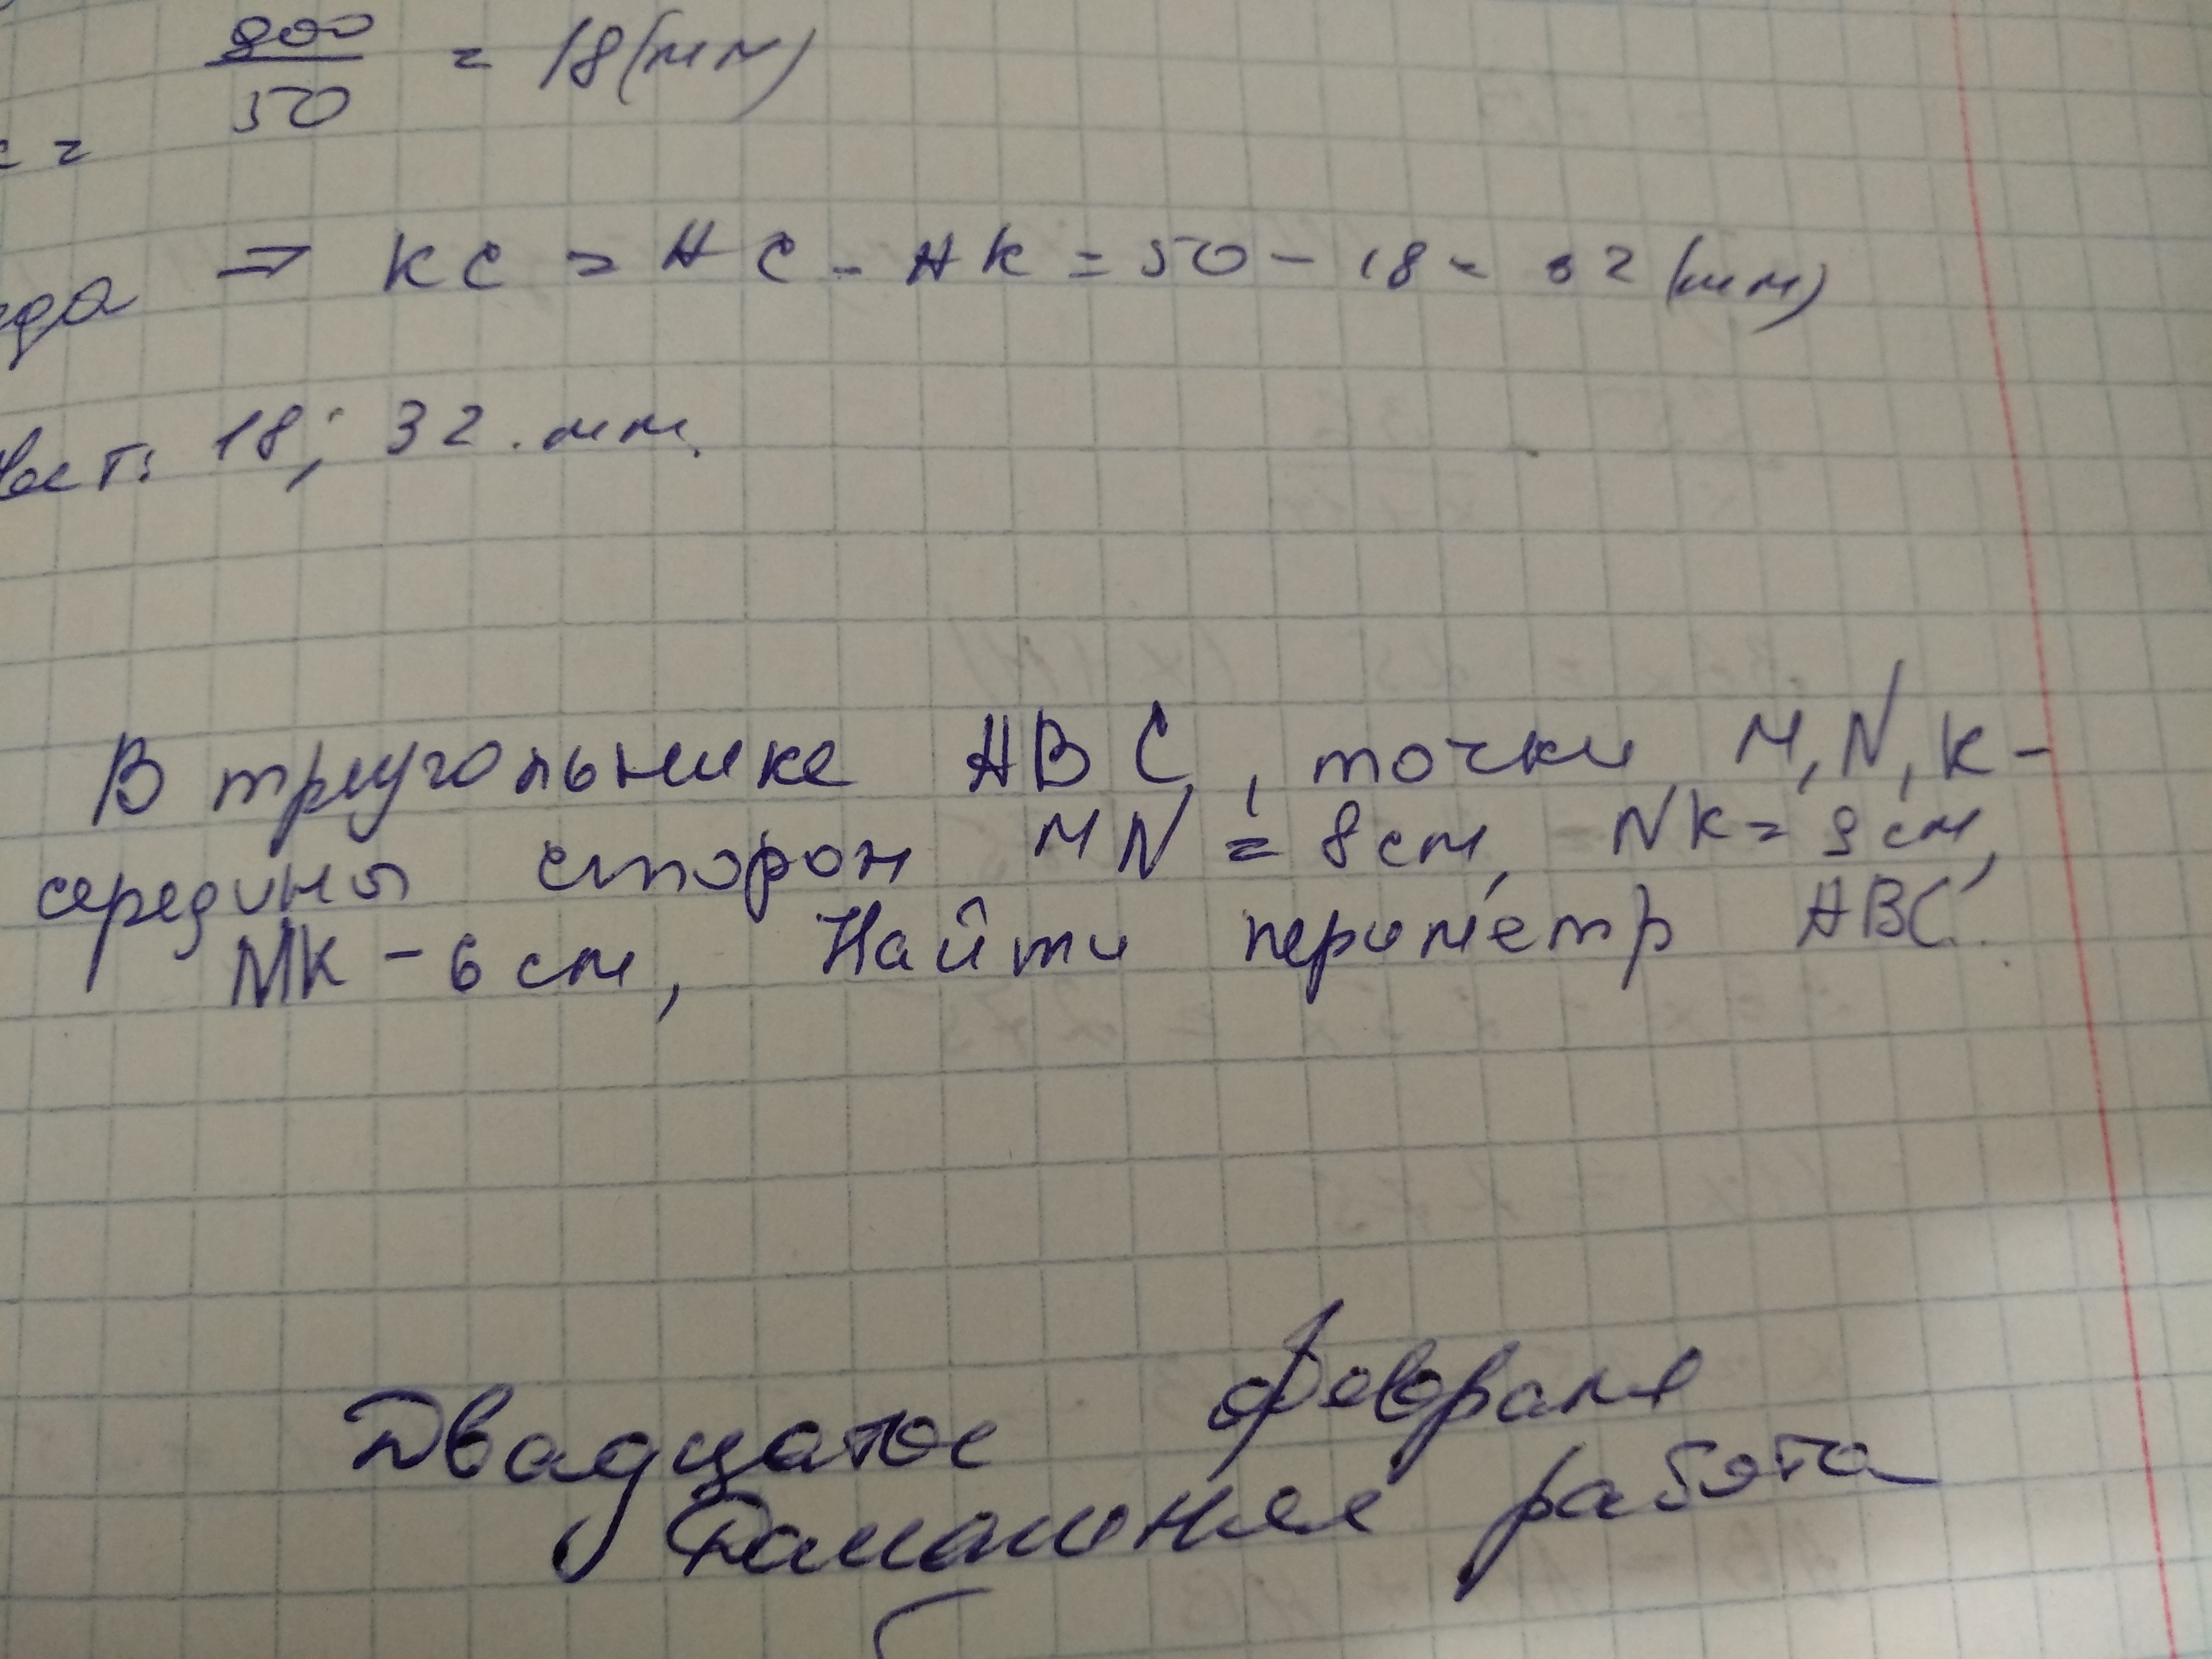 900
= 18(мм)
50
=
⇒ KC = AC - AK = 50 - 18 = 32 (мм)
18; 32 мм.
В треугольнике ABC, точки M, N, K -
середины сторон MN = 8 см, NK = 9 см,
MK - 6 см, Найти периметр ABC.
Двадцатое февраля
Домашняя работа